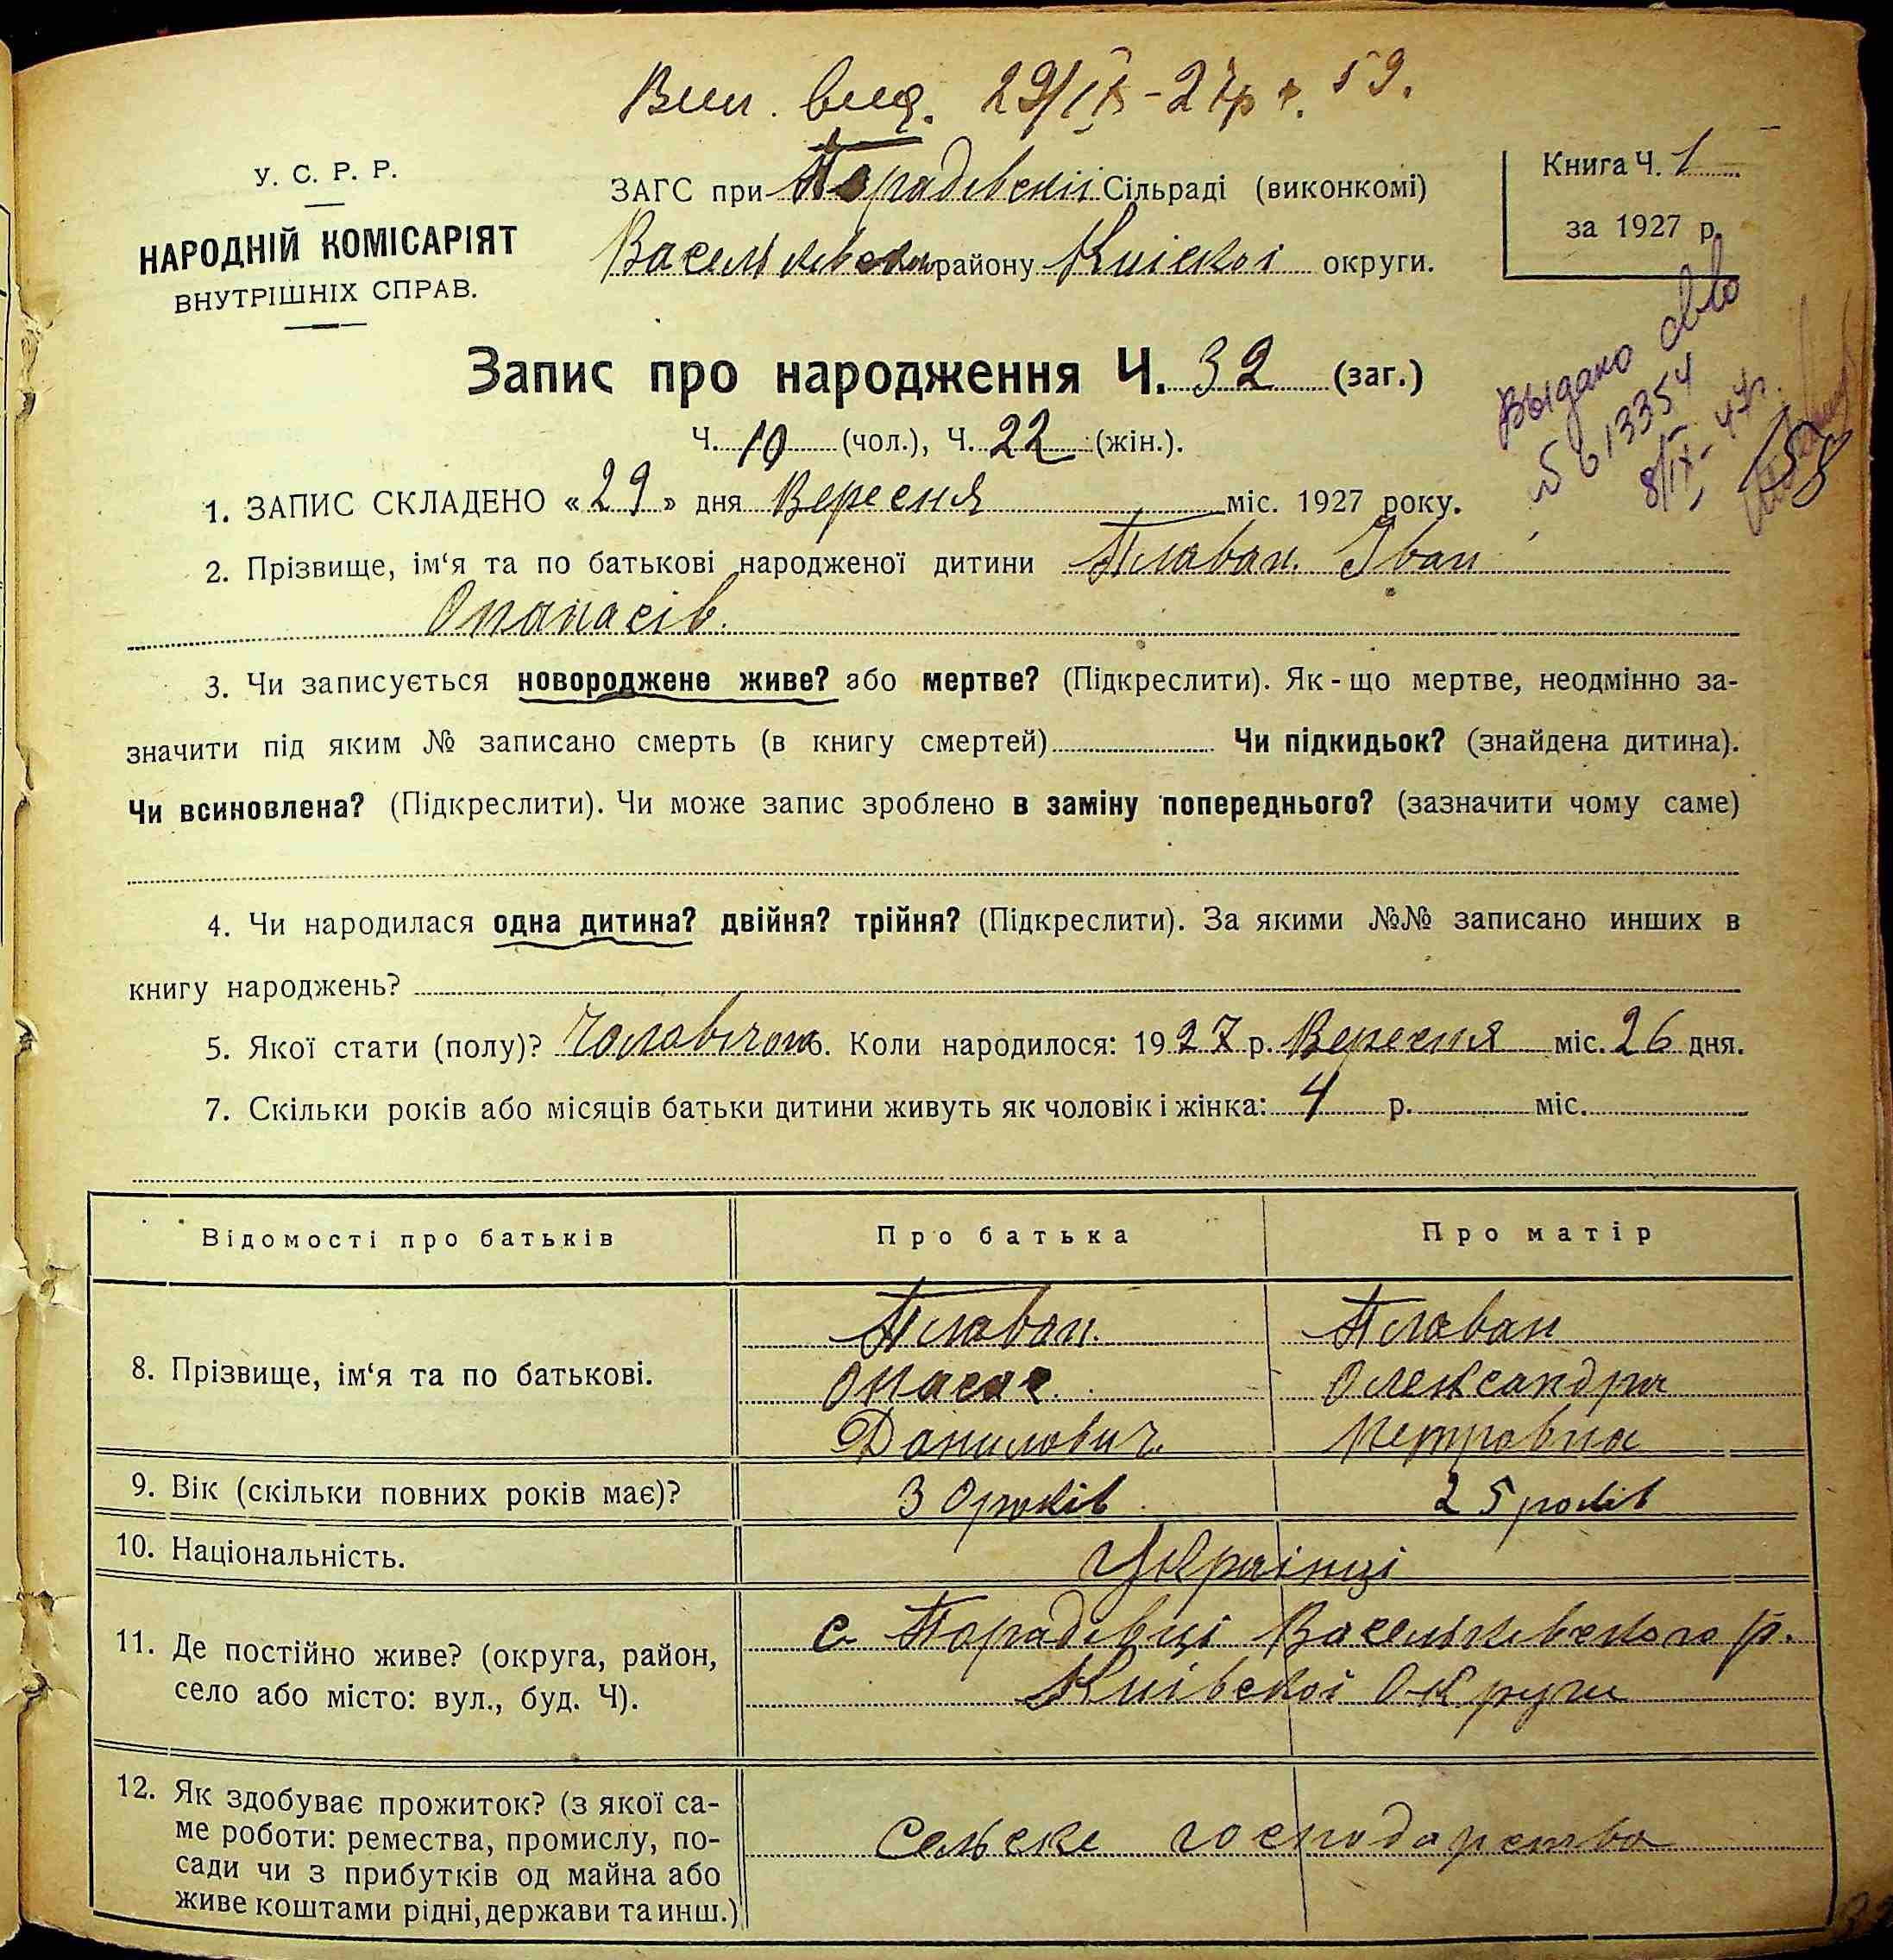 Вип. вид. 29/IX-27р ч. 59.
У. С. Р. Р.
НАРОДНІЙ КОМІСАРІЯТ
ВНУТРІШНІХ СПРАВ.
ЗАГС при Порадівскій Сільраді (виконкомі)
району Київскої округи.
Книга Ч. 1
за 1927 р.
Выдано св-во
613354
8/IX-47г.
158
Запис про народження Ч. 32 (заг.)
Ч. 10 (чол.), Ч. 22 (жін.).
1. ЗАПИС СКЛАДЕНО «29» дня Вересня міс. 1927 року.
2. Прізвище, ім‘я та по батькові народженої дитини Плаван Іван
Опанасів.
3. Чи записується новороджене живе? або мертве? (Підкреслити). Як-що мертве, неодмінно за-
значити під яким № записано смерть (в книгу смертей) Чи підкидьок? (знайдена дитина).
Чи всиновлена? (Підкреслити). Чи може запис зроблено в заміну попереднього? (зазначити чому саме)
4. Чи народилася одна дитина? двійня? трійня? (Підкреслити). За якими №№ записано инших в
книгу народжень?
5. Якої стати (полу)? 6. Коли народилося: 1927 р. Вересня міс. 26 дня.
7. Скільки років або місяців батьки дитини живуть як чоловік і жінка: 4 р. міс.
Відомості про батьків Про батька Про матір
8. Прізвище, ім‘я та по батькові.
Плаван Плаван
Олександра
Данилович. Петровна
9. Вік (скільки повних років має)? 30 років 25 років
10. Національність. Українці
11. Де постійно живе? (округа, район,
село або місто: вул., буд. Ч).
с Порадівці Васельківского р.
Київскої Округи
12. Як здобуває прожиток? (з якої са-
ме роботи: ремества, промислу, по-
сади чи з прибутків од майна або
живе коштами рідні, держави та инш.)
Сельске господарство